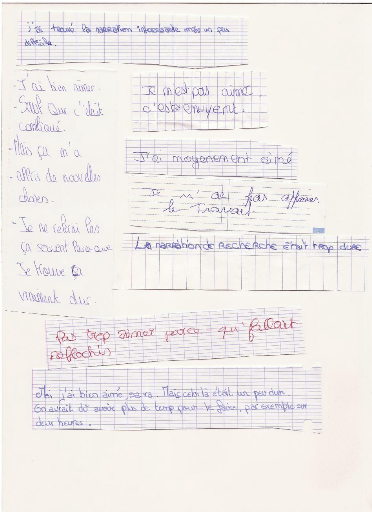 j'ai trouvé la narration intéressante mais un peu
difficile.
- J'ai bien aimer.
Sauf que c'était
compliqué.
- Mais ça m'a
appris de nouvelles
choses.
- Je ne referai pas
ça souvent parce que
Je trouve ça
vraiment dur.
Je n'est pas aimé
c'est ennuyent.
J'ai moyennement aimé
Je n'ai pas apprécier
le travail.
La narration de recherche était trop dure
Pas trop aimer parce qu'il fallait
réfléchir
Moi j'ai bien aimé, sa va. Mais cela était un peu dur.
On aurait dû avoir plus de temps pour le faire, par exemple sur
deux heures.